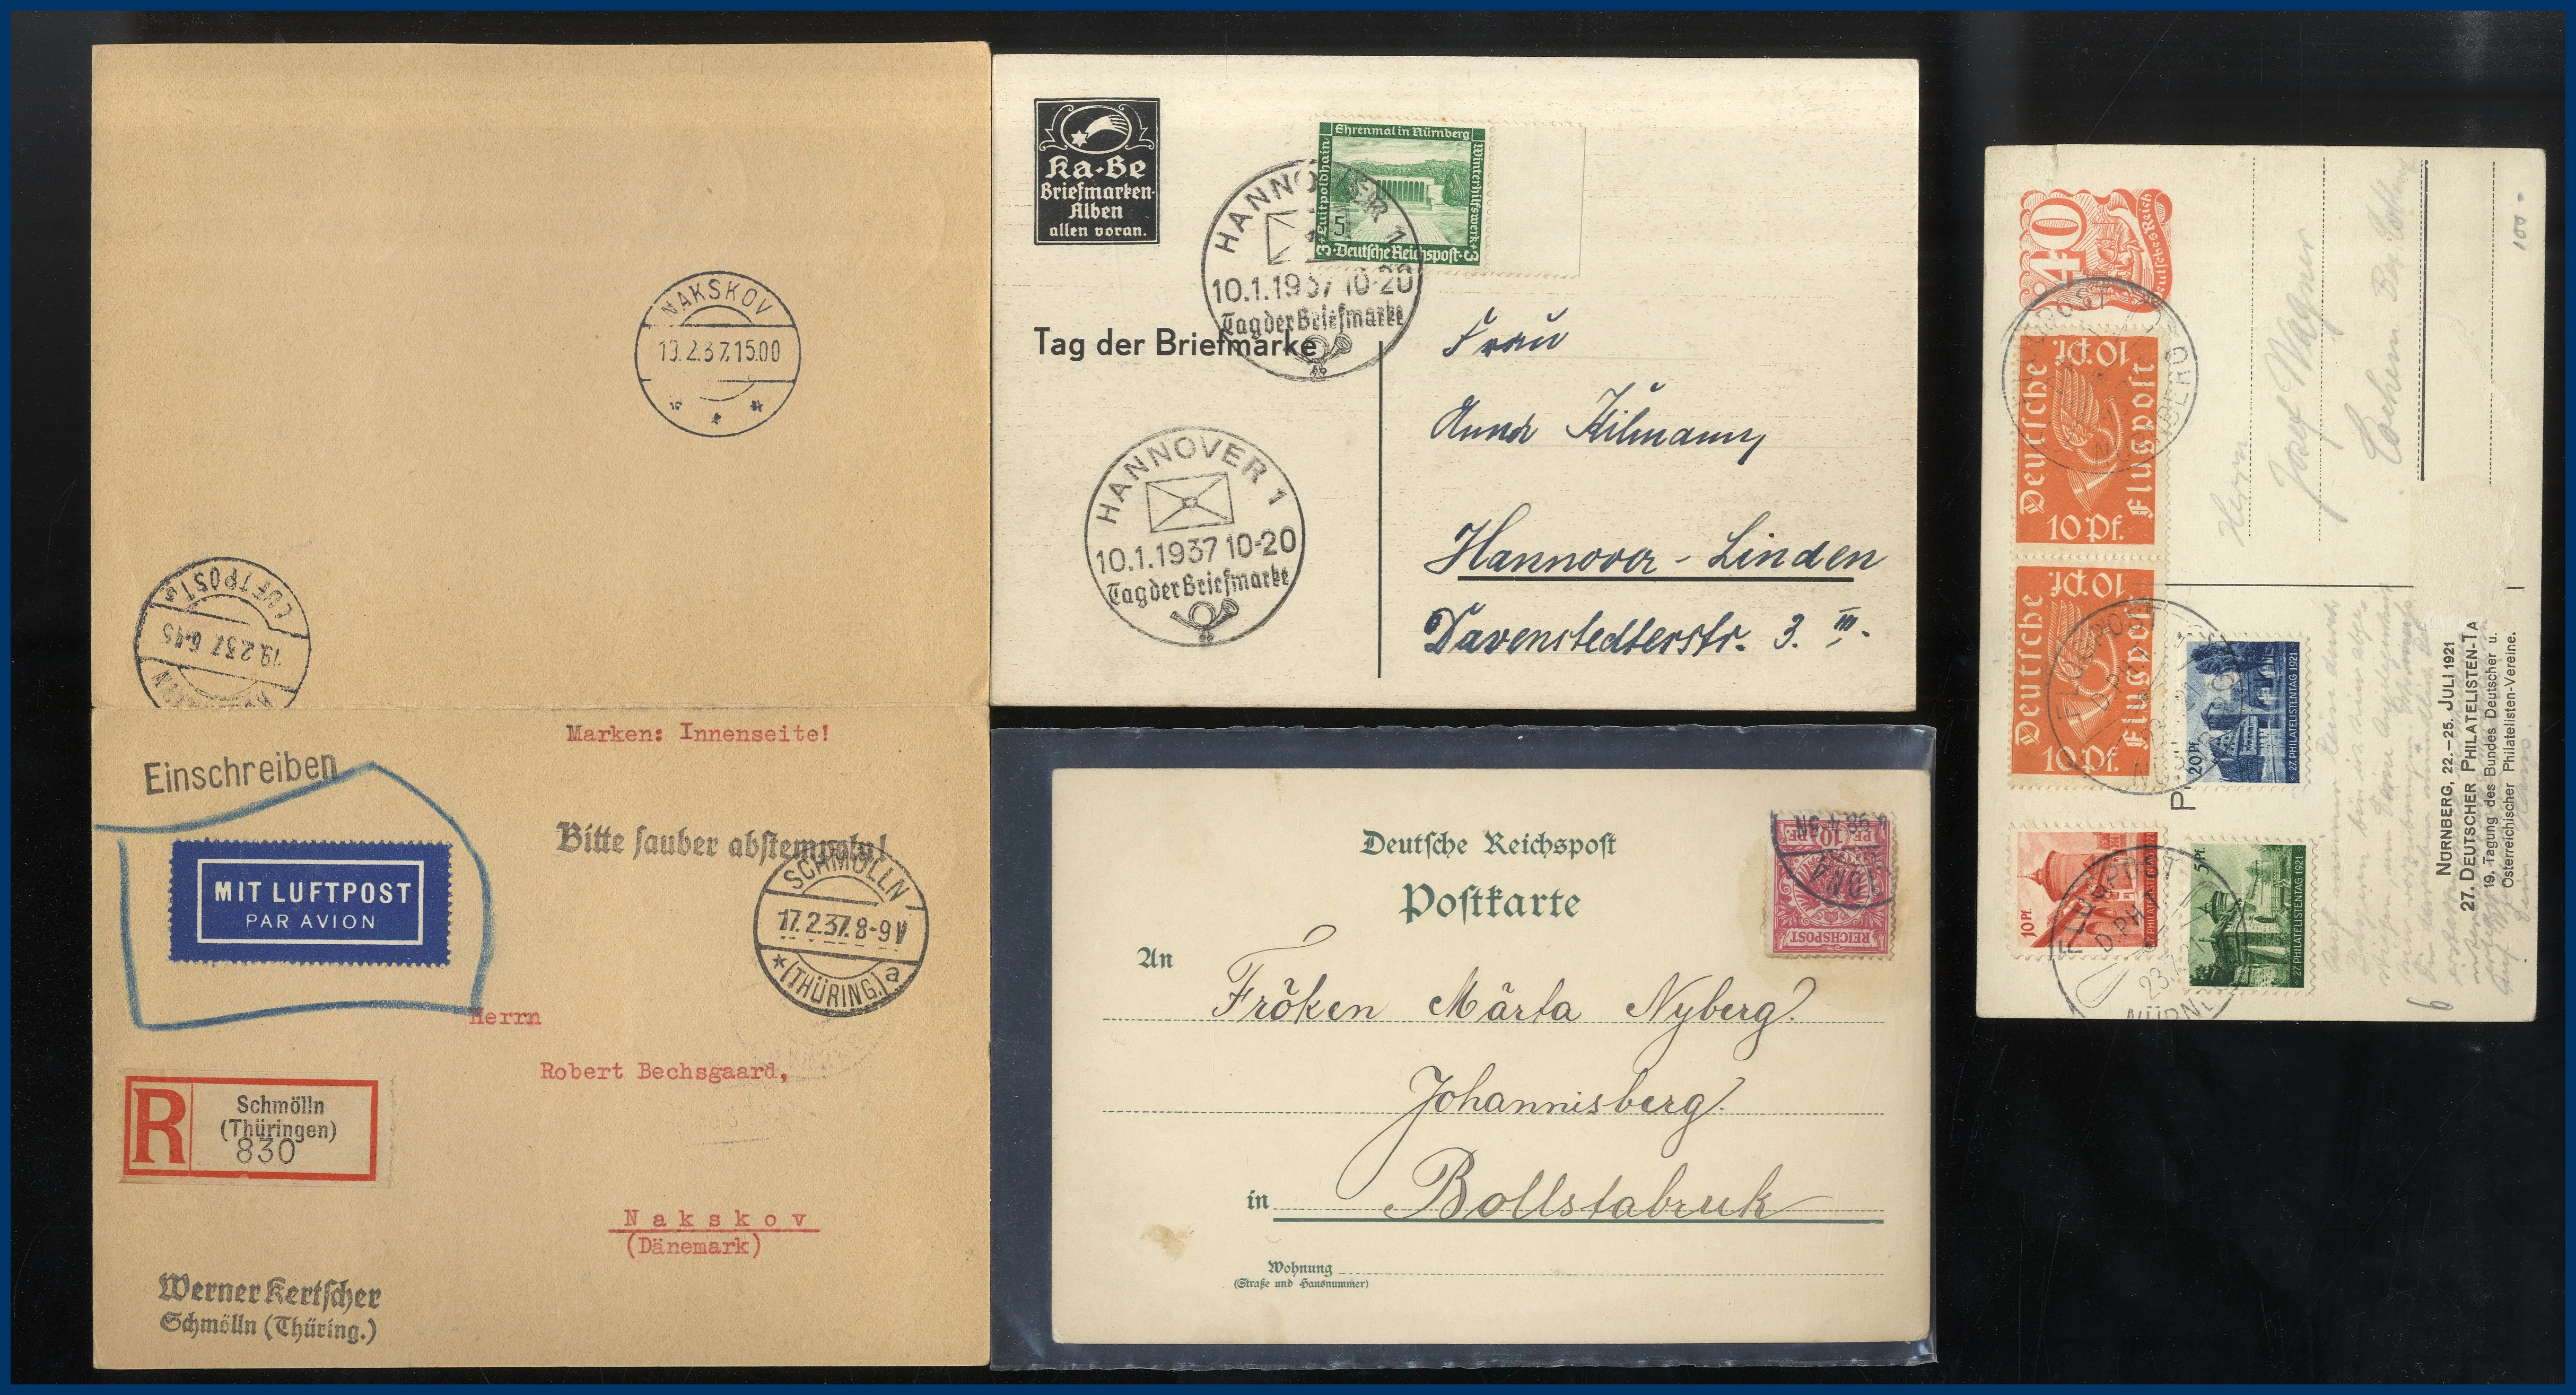 NAKSKOV
19.2.37.15.00
LUFTPOST
19.2.37. 6-45
Marken: Innenseite!
Einschreiben
Bitte sauber abstempeln!
SCHMÖLLN
17.2.37. 8-9 V
(THÜRING.) a
MIT LUFTPOST
PAR AVION
Herrn
Robert Bechsgaard,
R
Schmölln
(Thüringen)
830
Nakskov
(Dänemark)
Werner Kertscher
Schmölln (Thüring.)
Ka-Be
Briefmarken-
Alben
allen voran.
Ehrenmal in Nürnberg
Luitpoldhain
Winterhilfswerk
3+5
Deutsche Reichspost
3
HANNOVER 1
10.1.1937 10-20
Tag der Briefmarke
Tag der Briefmarke
HANNOVER 1
10.1.1937 10-20
Tag der Briefmarke
Frau
Anna Kilmann,
Hannover-Linden
Davenstedterstr. 3. III.
Deutsche Reichspost
Postkarte
REICHSPOST
PF. 10 PF.
98 4-5N
An
Fröken Märta Nyberg.
Johannisberg.
in Bollstabruk
Wohnung
(Straße und Hausnummer)
40
Deutsches Reich
Deutsche
Flugpost
10 Pf.
10 Pf.
Deutsche
Flugpost
10 Pf.
10 Pf.
FLUGPOST
NÜRNBERG
20 Pf
27. PHILATELISTENTAG 1921
10 Pf
5 Pf.
27. PHILATELISTENTAG 1921
FLUGPOST
D.PH.T.
23.
Herrn
Josef Wagner
Cochem
100.-
NÜRNBERG, 22.–25. JULI 1921
27. DEUTSCHER PHILATELISTEN-TA
19. Tagung des Bundes Deutscher u.
Österreichischer Philatelisten-Vereine.